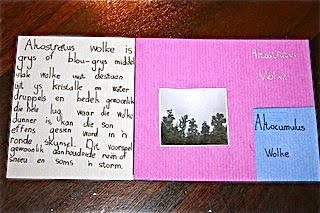 Altostratus wolke is
grys of blou-grys middel
vlak wolke wat bestaan
uit ys kristalle en water
druppels en bedek gewoonlik
die hele lug. waar die wolke
dunner is, kan die son
effens gesien word in 'n
ronde skynsel. Dit voorspel
gewoonlik aanhoudende reën of
sneeu en soms 'n storm.
Altostratus
Wolke
Altocumulus
Wolke